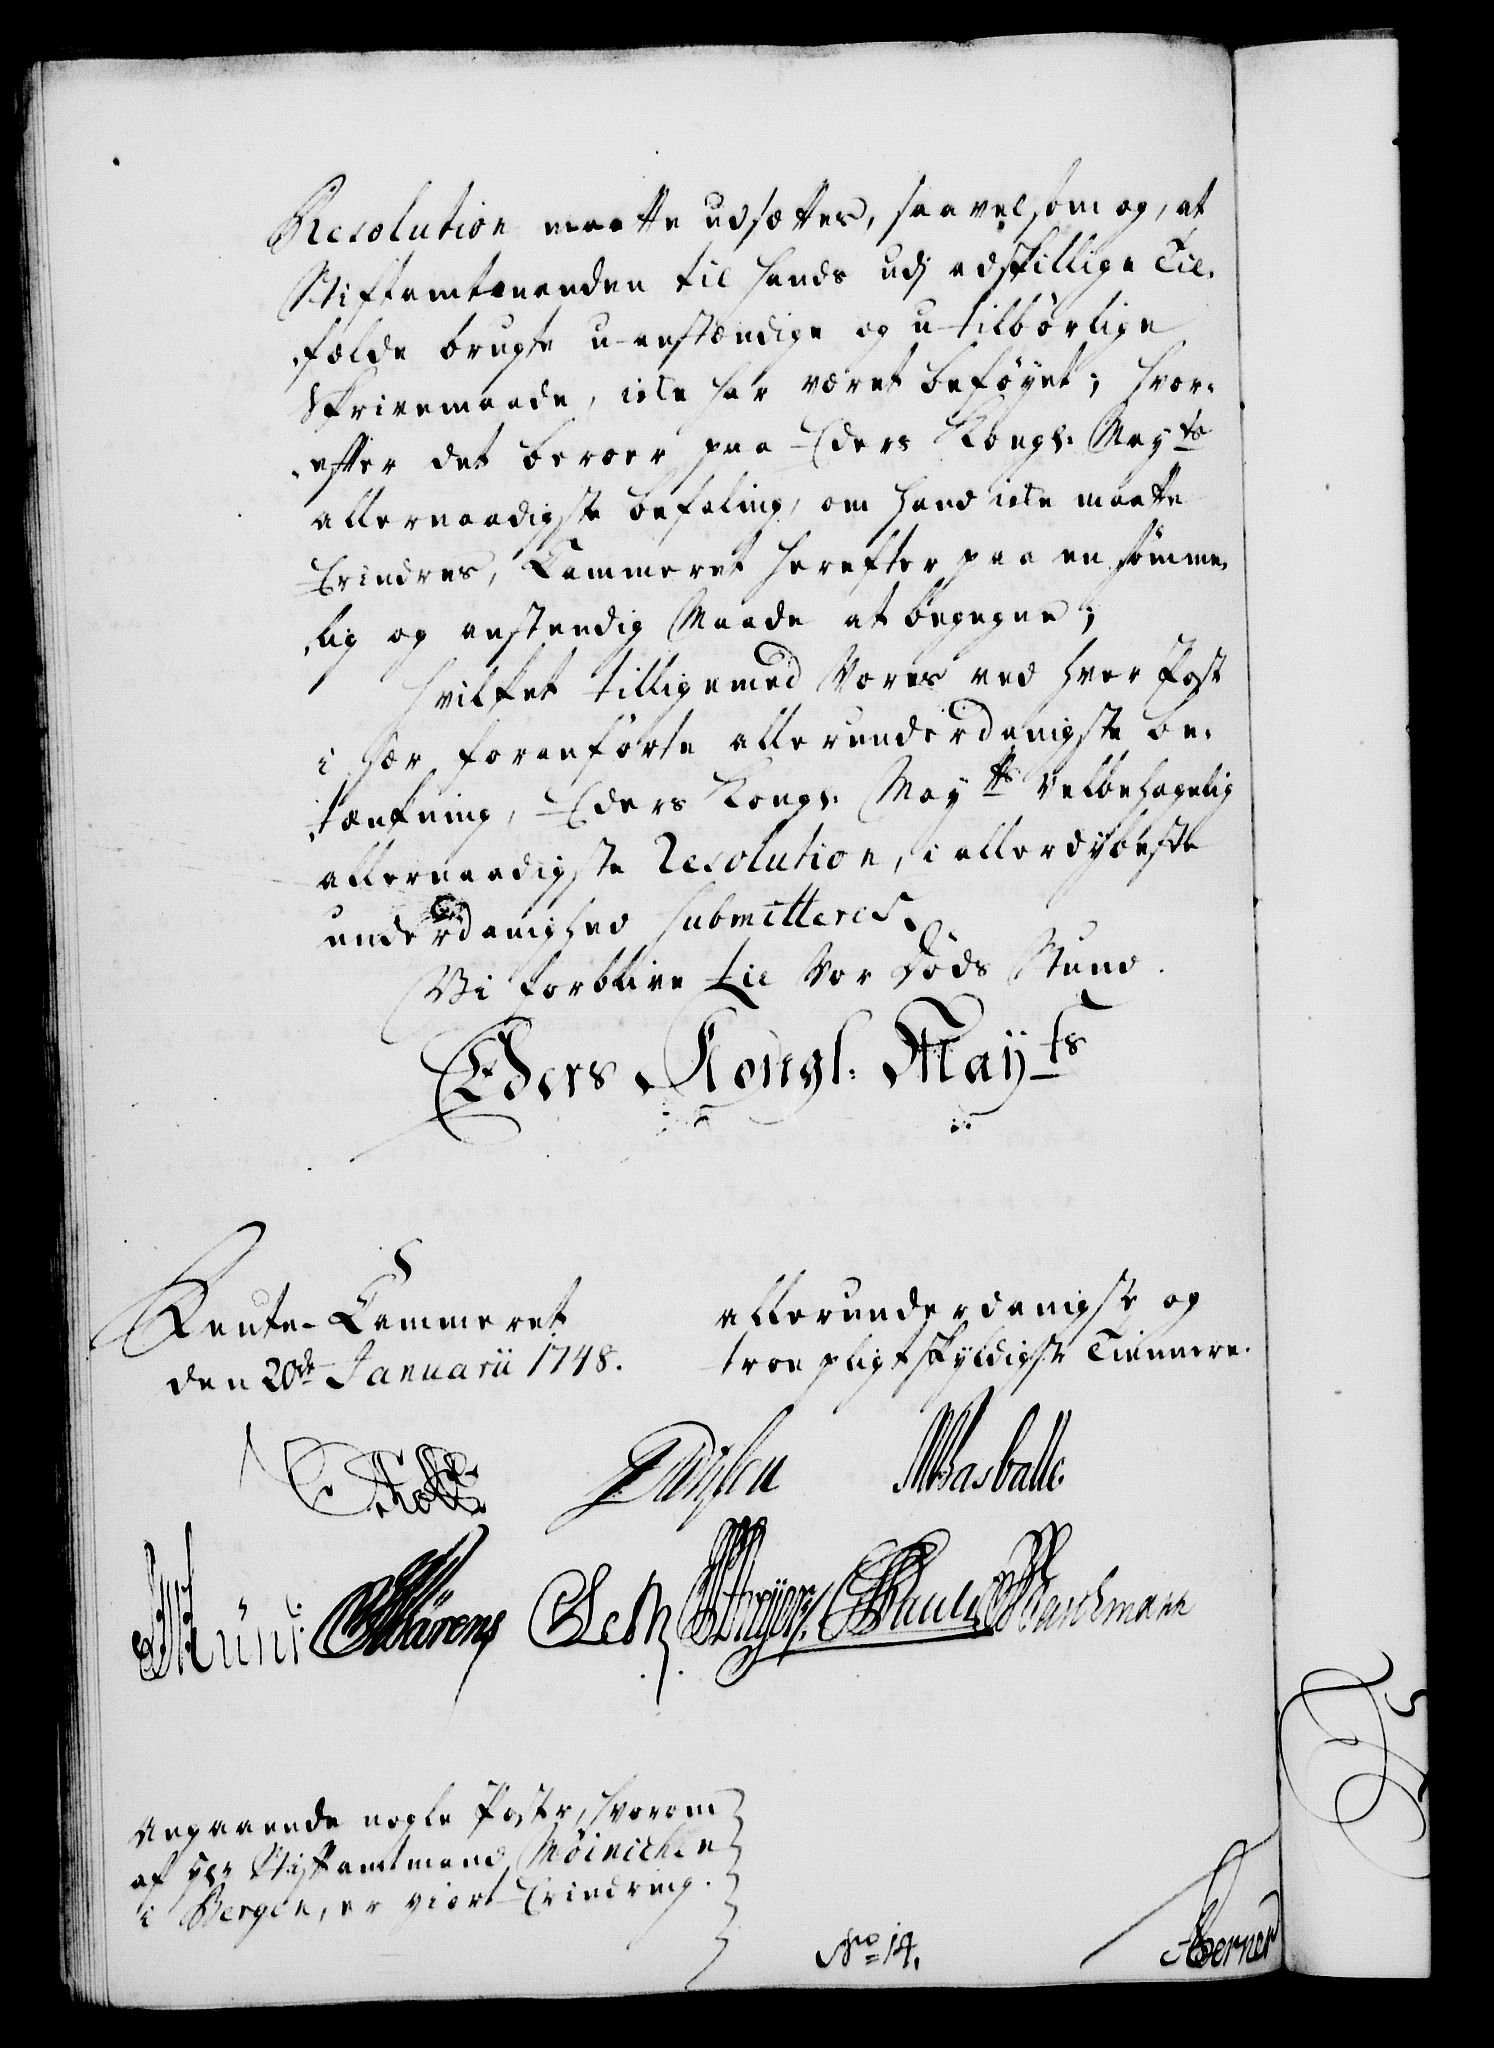 Resolution maatte udsættes, saavelsom og, at
Stiftamtmanden til hands udj adskillige Til,
,fælde brugte u-anstændige og u-tilbørlige
Skrivemaade, icke har været beføyet; hvor,
,efter det beroer paa Eders Kongl: Mayts
allernaadigste befaling, om hand icke maatte
Erindres, Cammeret herefter paa en sømme,
,lig og anstendig Maade at begegne;
Hvilket tilligemed Vores ved hver Post
i sær foranførte allerunderdanigste be,
,tænkning, Eders Kongl: Mayts Velbehagelig
allernaadigste Resolution, i allerdybeste
underdanighed submitteres.
Vi forblive til Vor Døds Stund.
Eders Kongl: Mayts
Rente-Cammeret
den 20de Januarii 1748.
allerunderdanigste og
troe pligtskyldigste Tiennere.
Wasballe
Angaaende nogle Poster, hvorom
af Hr Stiftamtmand Möinichen
i Bergen, er giort Erindring.
No 14.